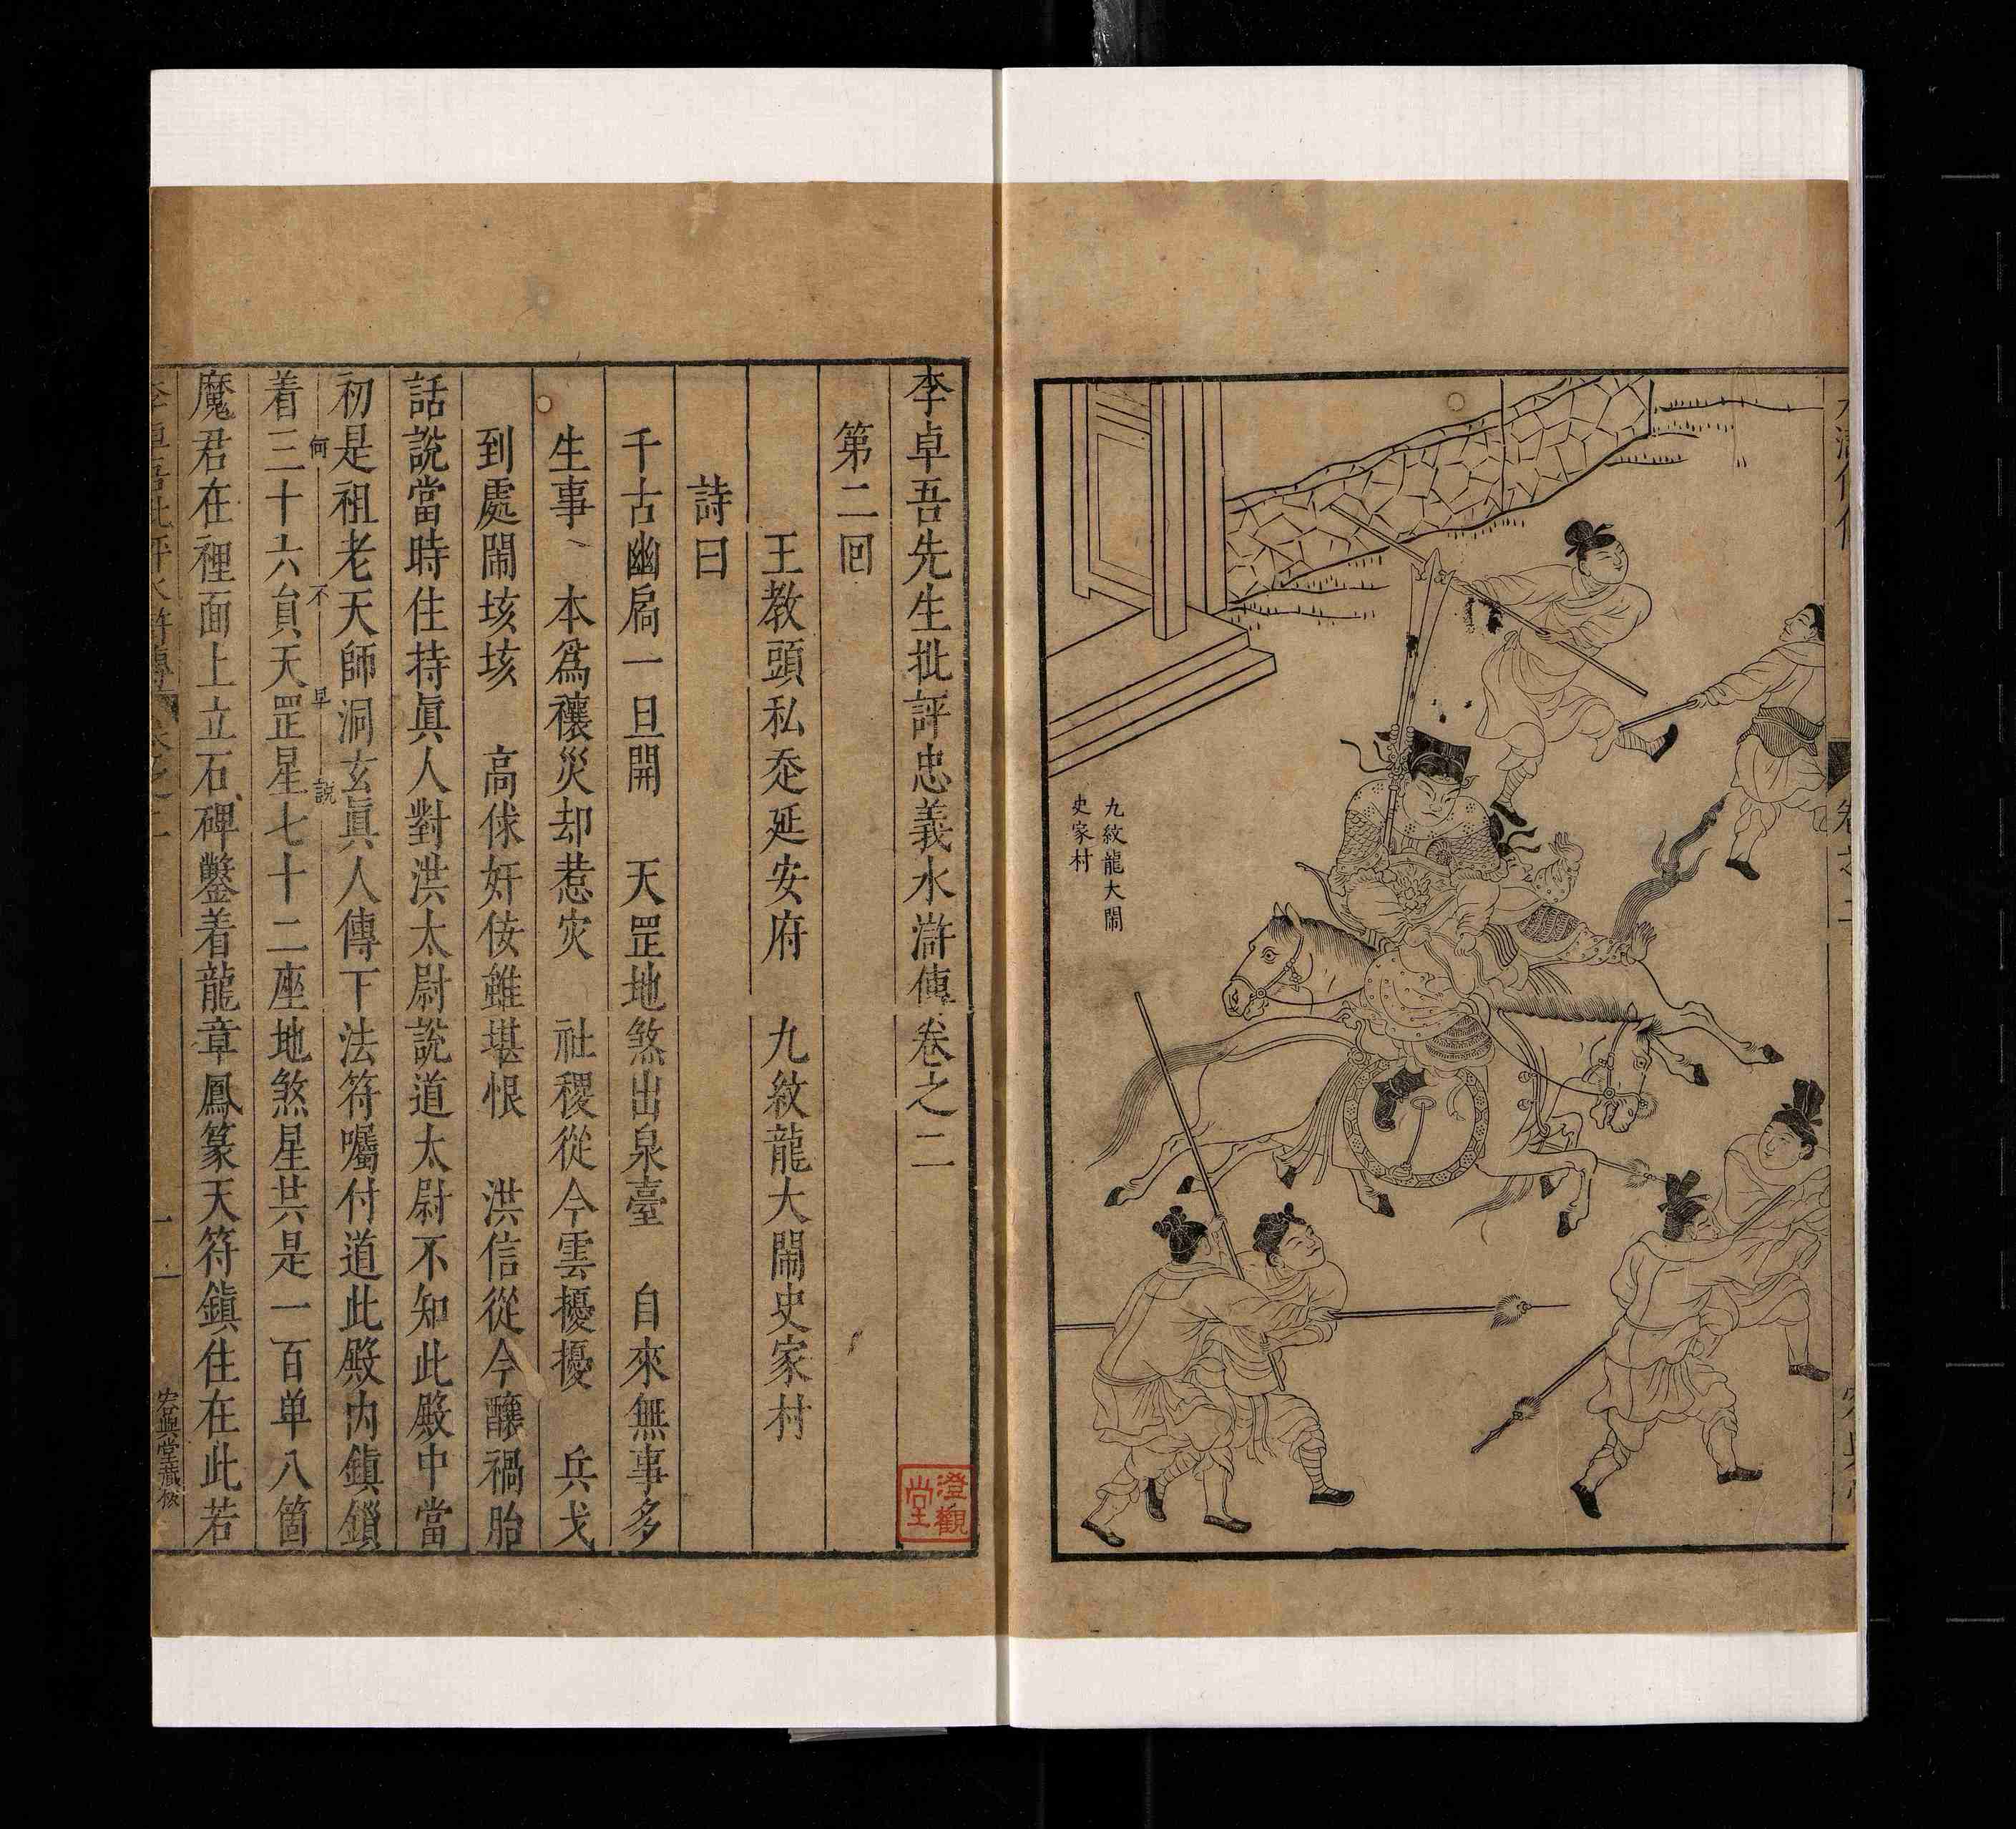 九紋龍大鬧
史家村
李卓吾先生批評忠義水滸傳卷之二
第二回
王教頭私走延安府　九紋龍大鬧史家村
詩曰
千古幽扃一旦開　天罡地煞出泉臺　自來無事多
生事、本爲禳災却惹灾　社稷從今雲擾擾　兵戈
到處閙垓垓　高俅奸佞雖堪恨　洪信從今釀禍胎
話說當時住持眞人對洪太尉說道太尉不知此殿中當
初是祖老天師洞玄眞人傳下法符囑付道此殿内鎮鎖
何不早說
着三十六貟天罡星七十二座地煞星共是一百单八箇
魔君在裡面上立石碑鑿着龍章鳳篆天符鎮住在此若
李卓吾批評水滸傳　卷之二　一　容與堂藏板
澄觀堂